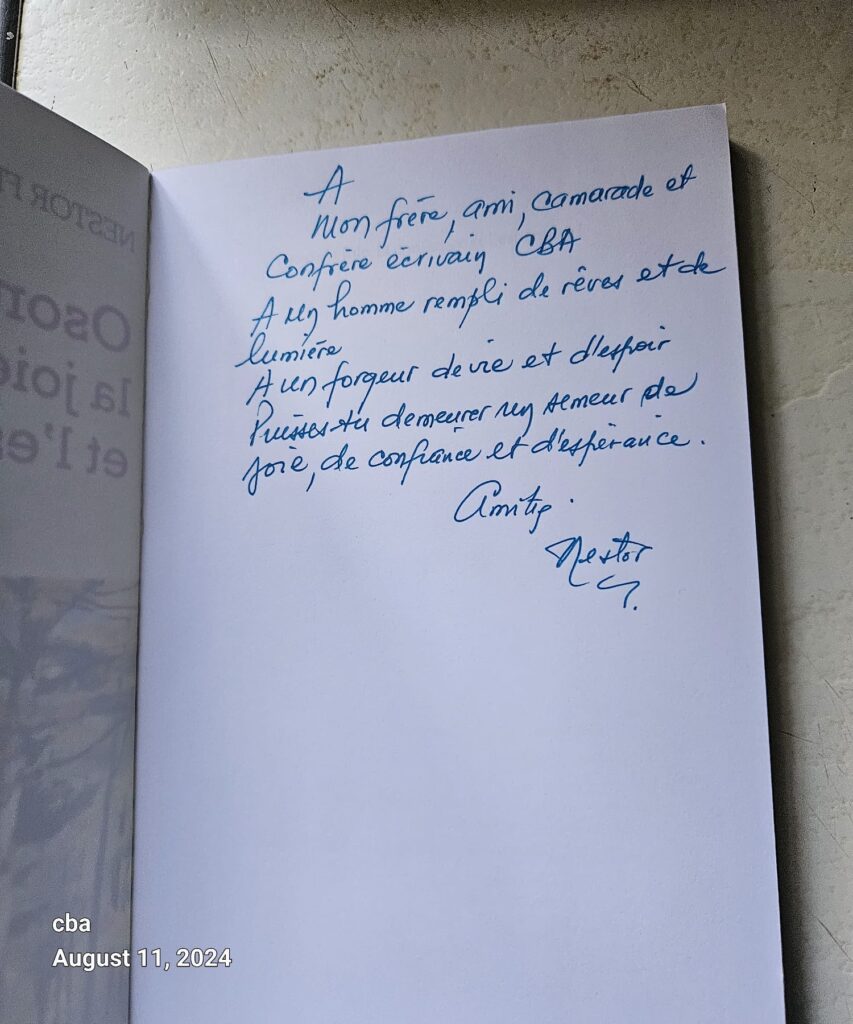 NESTOR
Oso
la joie
et l'es
A
Mon frère, ami, camarade et
Confrère écrivain CBA
A un homme rempli de rêves et de
lumière
A un forgeur de vie et d'espoir
Puisses-tu demeurer un semeur de
joie, de confiance et d'espérance.
Amitié.
Nestor
cba
August 11, 2024